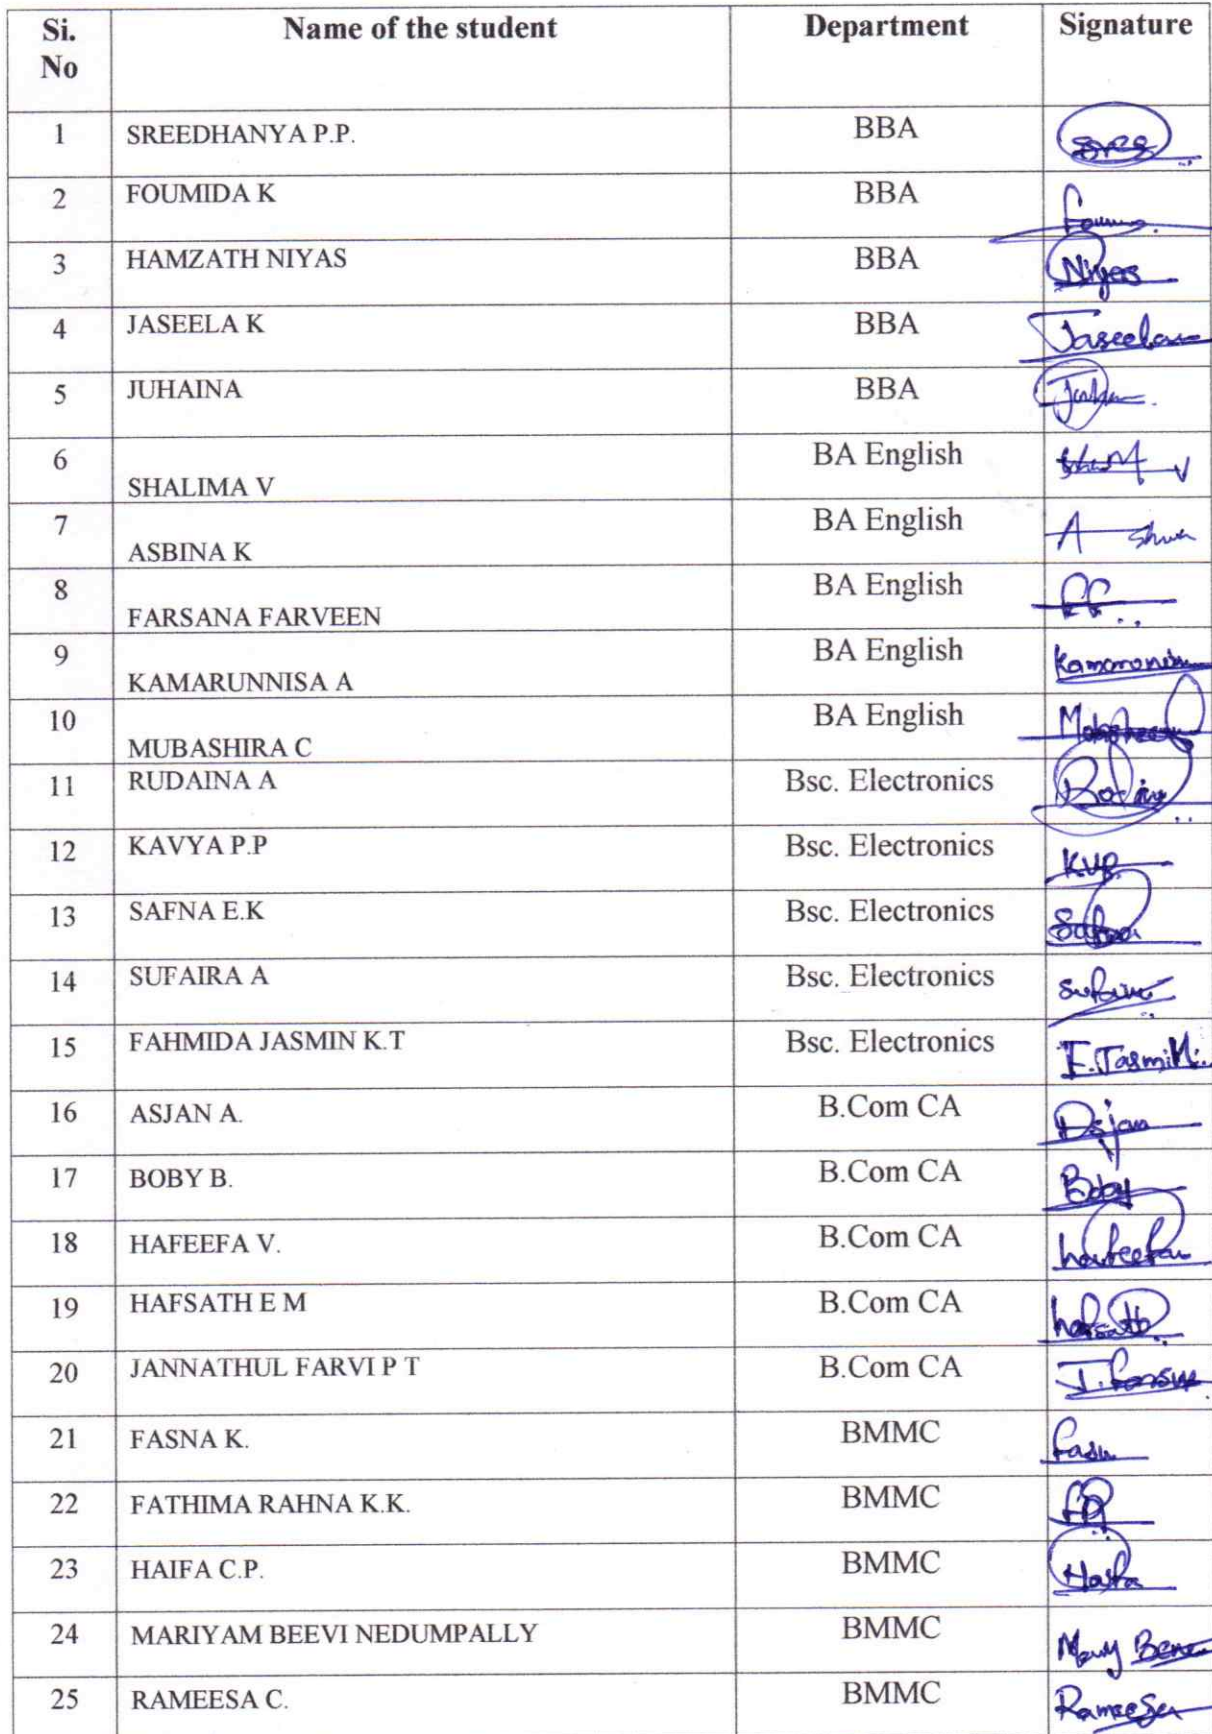 Si. No Name of the student Department Signature
1 SREEDHANYA P.P. BBA
2 FOUMIDA K BBA
3 HAMZATH NIYAS BBA Niyas
4 JASEELA K BBA Jaseela
5 JUHAINA BBA
6 SHALIMA V BA English
7 ASBINA K BA English
8 FARSANA FARVEEN BA English
9 KAMARUNNISA A BA English
10 MUBASHIRA C BA English
11 RUDAINA A Bsc. Electronics
12 KAVYA P.P Bsc. Electronics
13 SAFNA E.K Bsc. Electronics Safna
14 SUFAIRA A Bsc. Electronics
15 FAHMIDA JASMIN K.T Bsc. Electronics F.Jasmin
16 ASJAN A. B.Com CA
17 BOBY B. B.Com CA Boby
18 HAFEEFA V. B.Com CA
19 HAFSATH E M B.Com CA hafsath
20 JANNATHUL FARVI P T B.Com CA
21 FASNA K. BMMC
22 FATHIMA RAHNA K.K. BMMC
23 HAIFA C.P. BMMC Haifa
24 MARIYAM BEEVI NEDUMPALLY BMMC
25 RAMEESA C. BMMC Rameesa